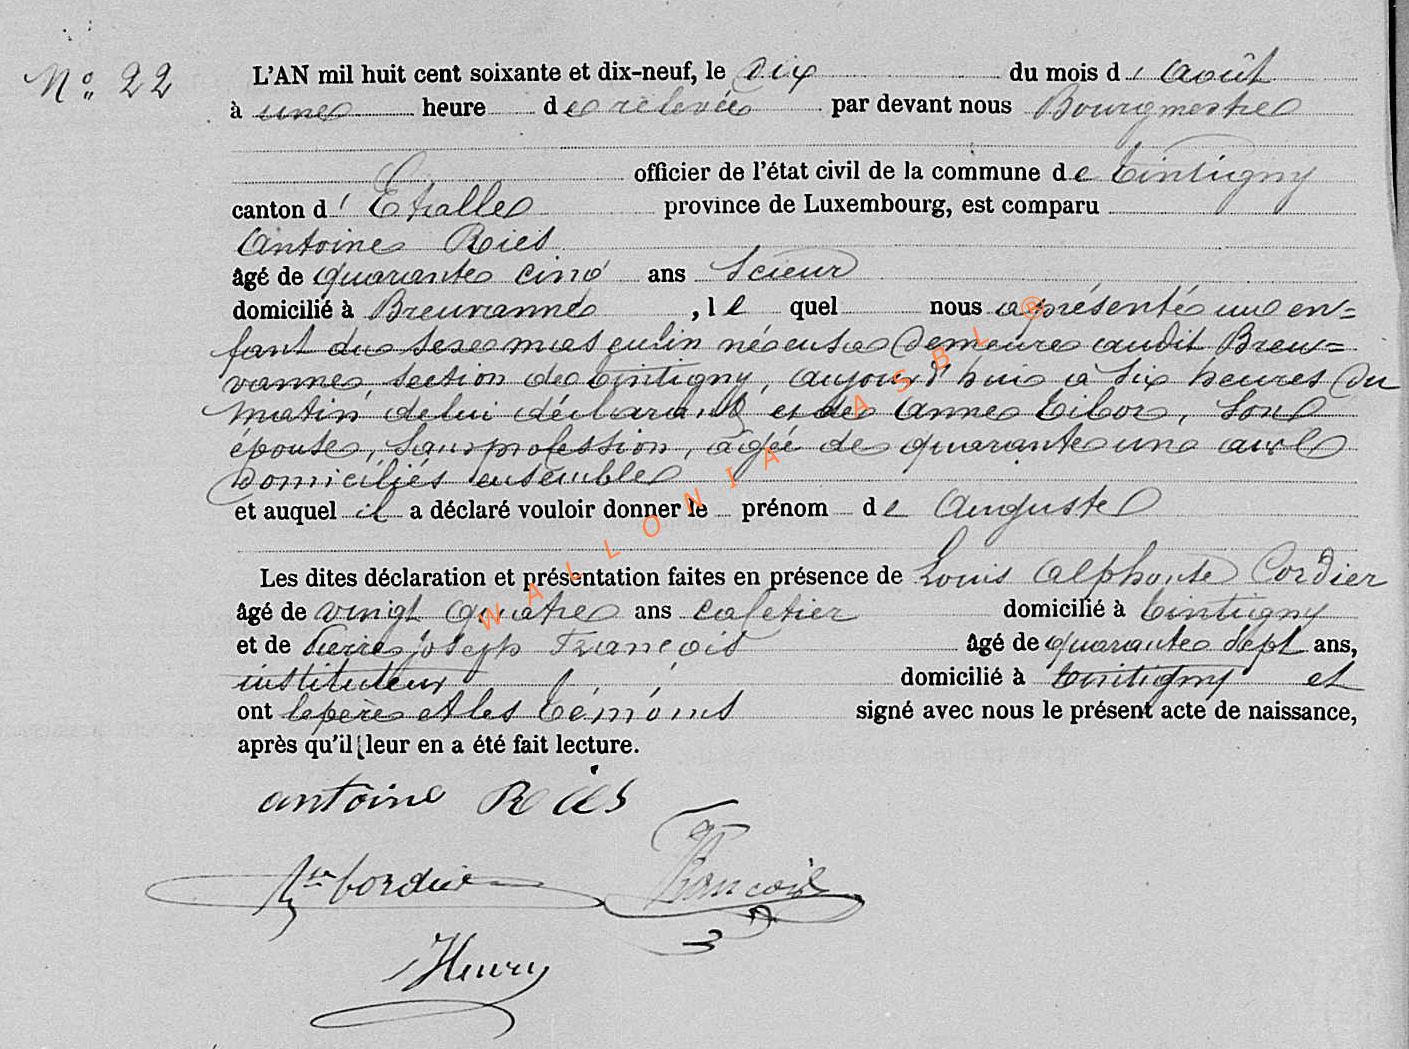 N° 22
L'AN mil huit cent soixante et dix-neuf, le dix du mois d'Août
à une heure de relevée par devant nous Bourgmestre
officier de l'état civil de la commune de Tintigny
canton d'Etalle province de Luxembourg, est comparu
Antoine Ries
âgé de quarante cinq ans Scieur
domicilié à Breuvanne, le quel nous a présenté un en=
fant du sexe masculin né en sa demeure audit Breu=
vanne section de Tintigny, aujourd'hui à six heures du
matin de lui déclarant et de Anne Tibor, son
épouse, sans profession, agée de quarante un ans
domiciliés ensemble
et auquel il a déclaré vouloir donner le prénom de Auguste
Les dites déclaration et présentation faites en présence de Louis Alphonse Cordier
âgé de vingt quatre ans cafetier domicilié à Tintigny
et de Pierre Joseph François âgé de quarante sept ans,
instituteur domicilié à Tintigny et
ont le père et les témoins signé avec nous le présent acte de naissance,
après qu'il leur en a été fait lecture.
antoine Ries
Cordier François
Henry
WALLONIA ASBL ®